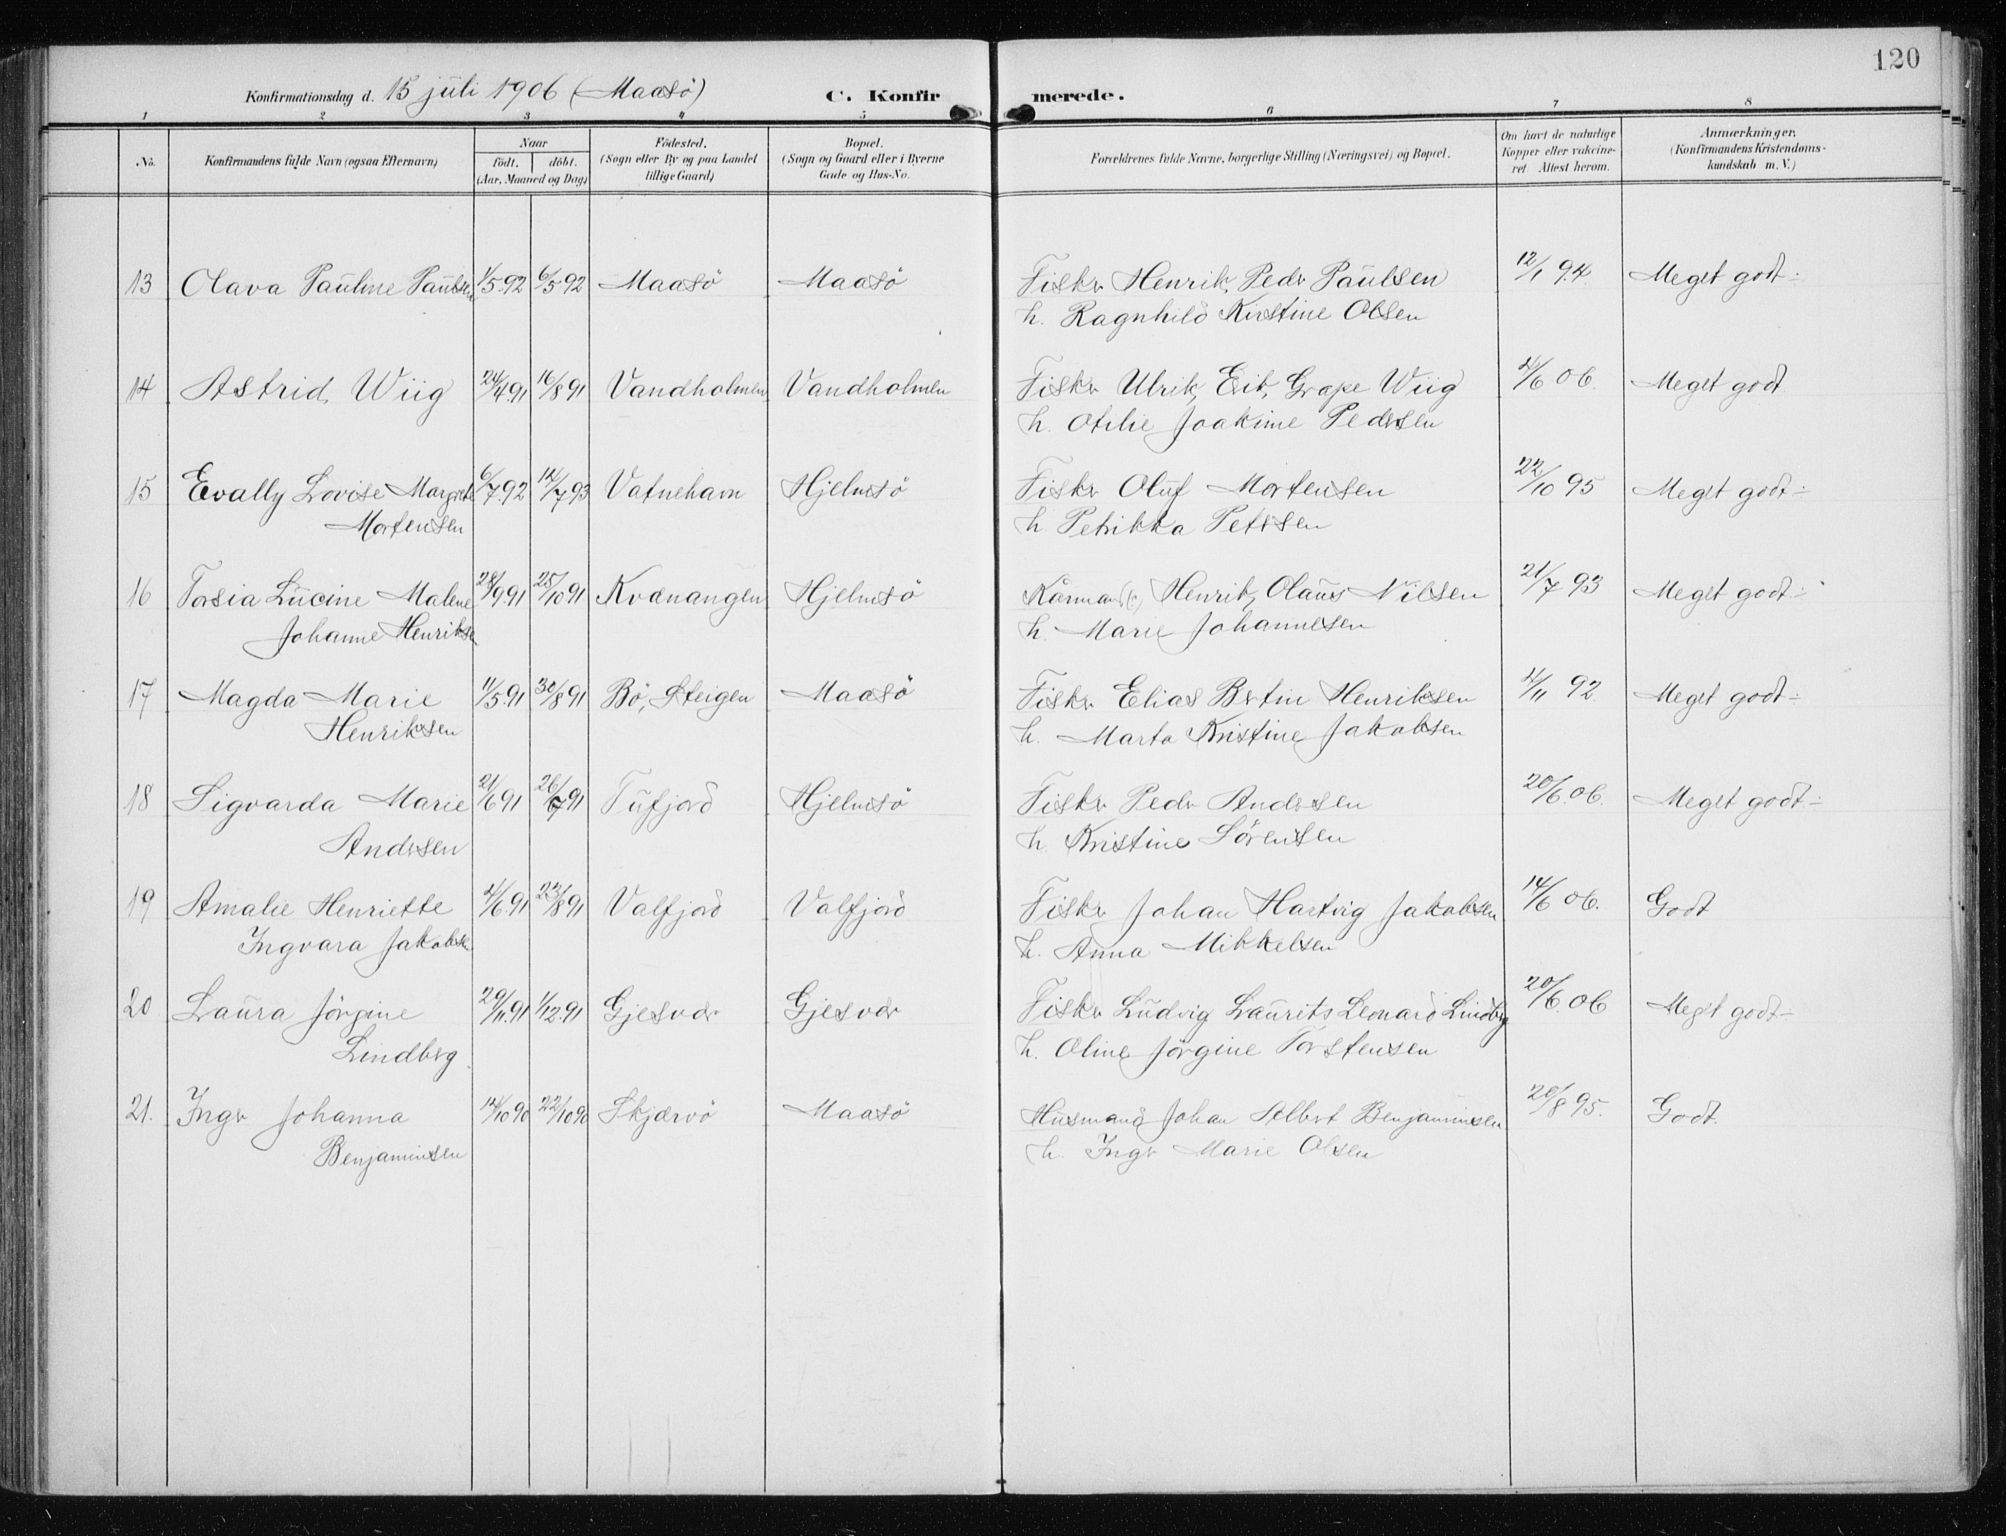 120
Konfirmationsdag d. 15 juli 1906 (Maasö) C. Konfirmerede.
1 2 3 4 5 6 7 8
No. Konfirmandens fulde Navn (ogsaa Efternavn) Naar födt. döbt. (Aar, Maaned og Dag) Födested. (Sogn eller By og paa Landet tillige Gaard) Bopæl. (Sogn og Gaard eller i Byerne Gade og Hus-No. Forældrenes fulde Navne, borgerlige Stilling (Næringsvei) og Bopæl. Om havt de naturlige Kopper eller vaccineret Attest herom. Anmærkninger. (Konfirmandens Kristendomskundskab m. V.)
13 Olava Pauline Paulsen 1/5 92 6/5 92 Maasö Maasö Fisker Henrik Peder Paulsen 12/1 94 Meget godt
h. Ragnhild Kirstine Olsen
14 Astrid Wiig 24/4 91 16/8 91 Vandholmen Vandholmen Fisker Ulrik Erik Grape Wiig /6 06. Meget godt
h. Otilie Joakime Pedersen
15 Evally Lovise Margrete 6/7 92 12/7 93 Vatnehavn Hjelmsö Fisker Oluf Mortensen 22/10 95 Meget godt
Mortensen h Petrikka Petersen
16 Torsia Lucine Malene 28/9 91 25/10 91 Kvænangen Hjelmsö Henrik Olaus Nilsen 21/7 93 Meget godt
Johanne Henriksen h. Marie Johannesen
17 Magda Marie 11/5 91 30/8 91 Bö, Steigen Maasö Fisker Elias Bertin Henriksen /11 92 Meget godt
Henriksen h. Marta Kristine Jakobsen
18 Sigvarda Marie 21/6 91 26/7 91 Tufjord Hjelmsö Fisker Peder Andersen 20/6 06. Meget godt
Andersen h. Kristine Sörensen
19 Amalie Henriette /6 91 23/8 91 Valfjord Valfjord Fisker Johan Hartvig Jakobsen 14/6 06. Godt
Ingvara Jakobsen h. Anna Mikkelsen
20 Laura Jörgine 20/11 91 1/12 91 Gjesvær Gjesvær Fisker Ludvig Laurits Leonard Lindberg 20/6 06 Meget godt
Lindberg. h. Oline Jörgine Torstensen
21. Inger Johanna 14/10 90 22/10 90 Skjærvö Maasö Husmand Johan Albert Benjaminsen 20/8 95. Godt.
Benjaminsen h. Inger Marie Olsen